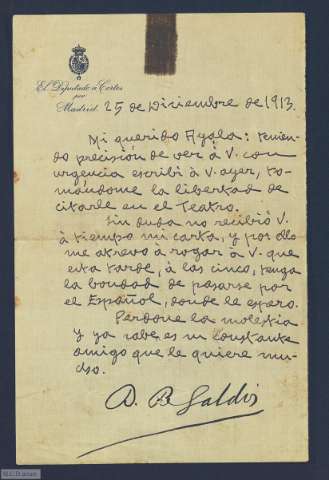 El Diputado a Cortes
por
Madrid. 25 de Diciembre de 1913.
Mi querido Ayala: tenien-
do precisión de ver á V. con
urgencia escribí á V. ayer, to-
mándome la libertad de
citarle en el Teatro.
Sin duda no recibió V.
á tiempo mi carta, y por ello
me atrevo a rogar á V. que
esta tarde, á las cinco, tenga
la bondad de pasarse por
el Español, donde le espero.
Perdone la molestia
y ya sabe es su constante
amigo que le quiere mu-
cho.
B. Galdós